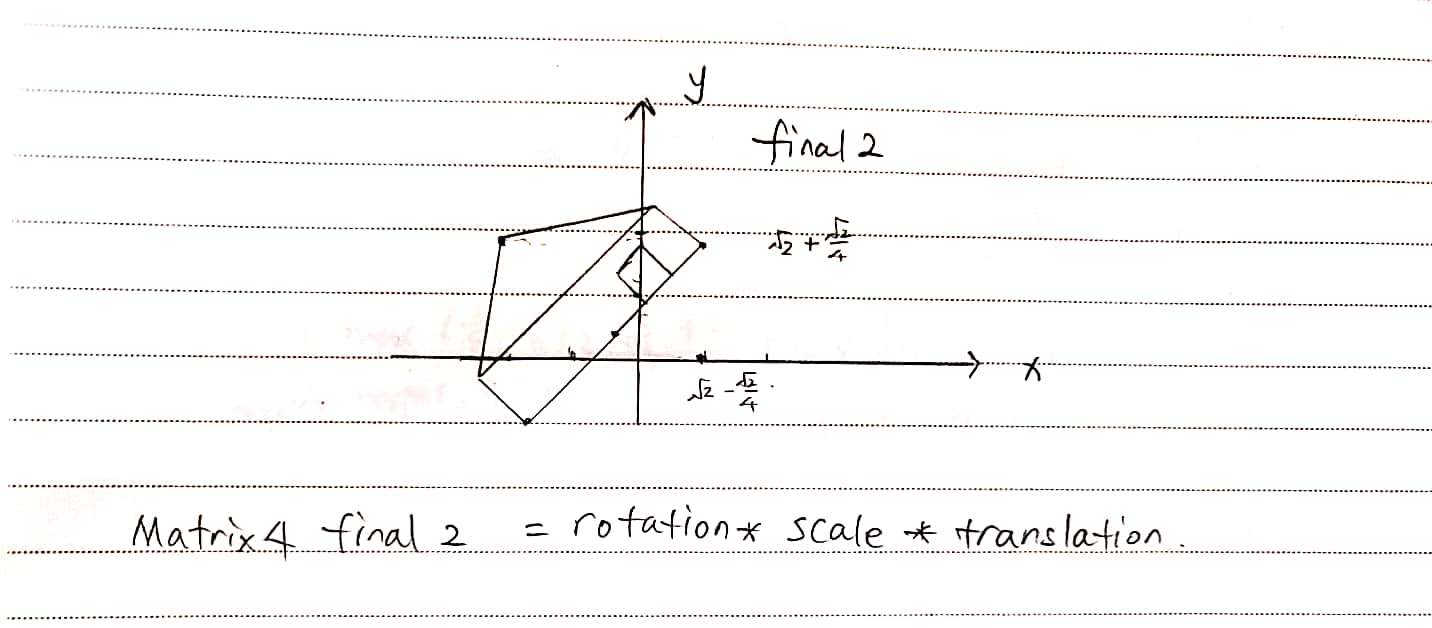 y
final 2
√2 + √2/4
x
√2 - √2/4
Matrix4 final 2 = rotation * scale * translation.